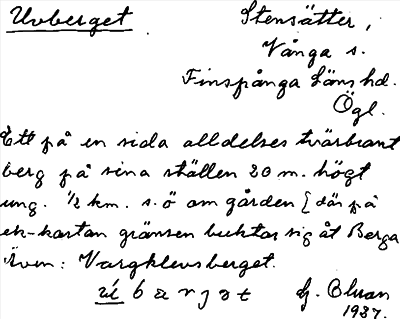 Uvberget. Stensätter,
Vånga s.
Finspånga läns hd.
Ögl.
Ett på en sida alldeles tvärbrant
berg på sina ställen 20 m. högt
ung. ½ km. s.ö om gården [där på
ek-kartan gränsen buktar sig åt Berga
Även: Vargklevsberget.
G. Olson
1937.